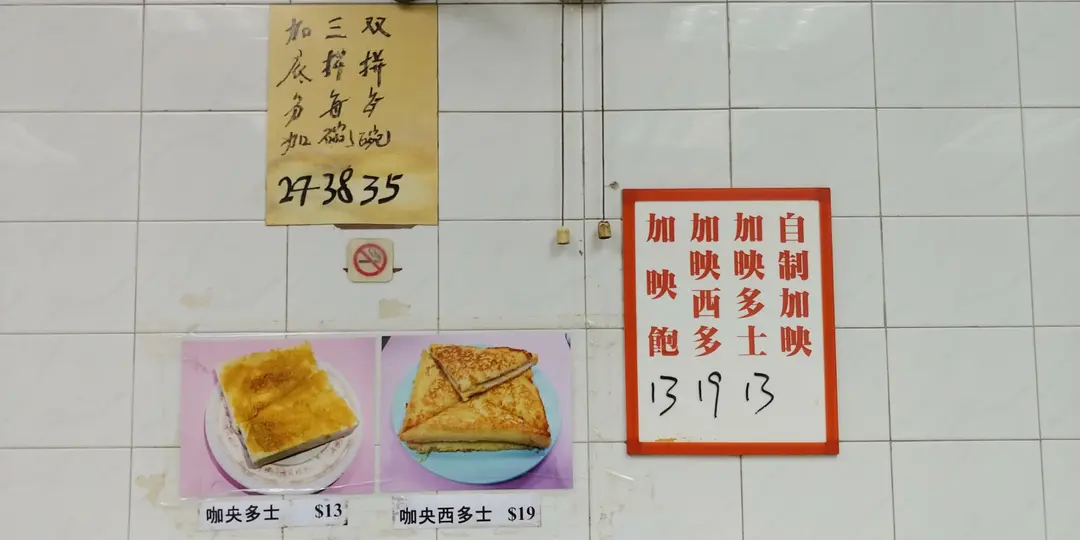 双拼每碗
35
三拼每碗
38
加底另加
自制加映
加映多士
13
加映西多
19
加映飽
13
咖央多士 $13
咖央西多士 $19